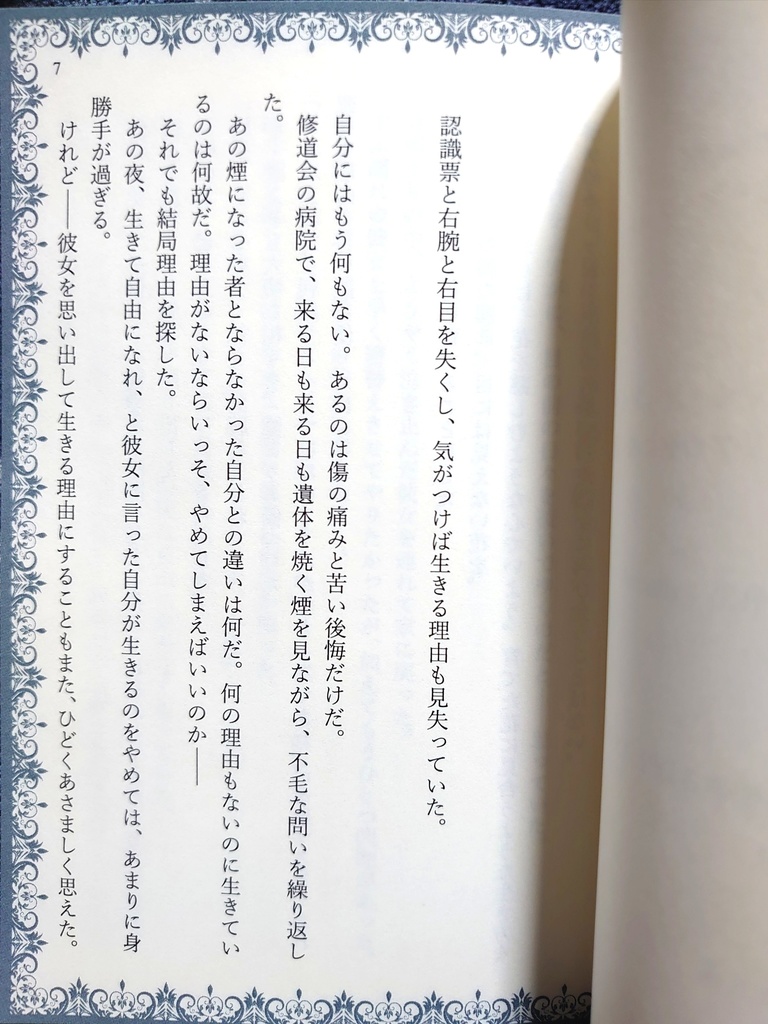 認識票と右腕と右目を失くし、気がつけば生きる理由も見失っていた。
自分にはもう何もない。あるのは傷の痛みと苦い後悔だけだ。
修道会の病院で、来る日も来る日も遺体を焼く煙を見ながら、不毛な問いを繰り返し
た。
あの煙になった者とならなかった自分との違いは何だ。何の理由もないのに生きてい
るのは何故だ。理由がないならいっそ、やめてしまえばいいのか――
それでも結局理由を探した。
あの夜、生きて自由になれ、と彼女に言った自分が生きるのをやめては、あまりに身
勝手が過ぎる。
けれど――彼女を思い出して生きる理由にすることもまた、ひどくあさましく思えた。
7